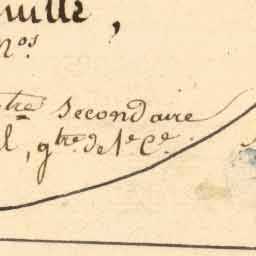 uille,
nos
tre Secondaire
l, gtre de 1e Ce.